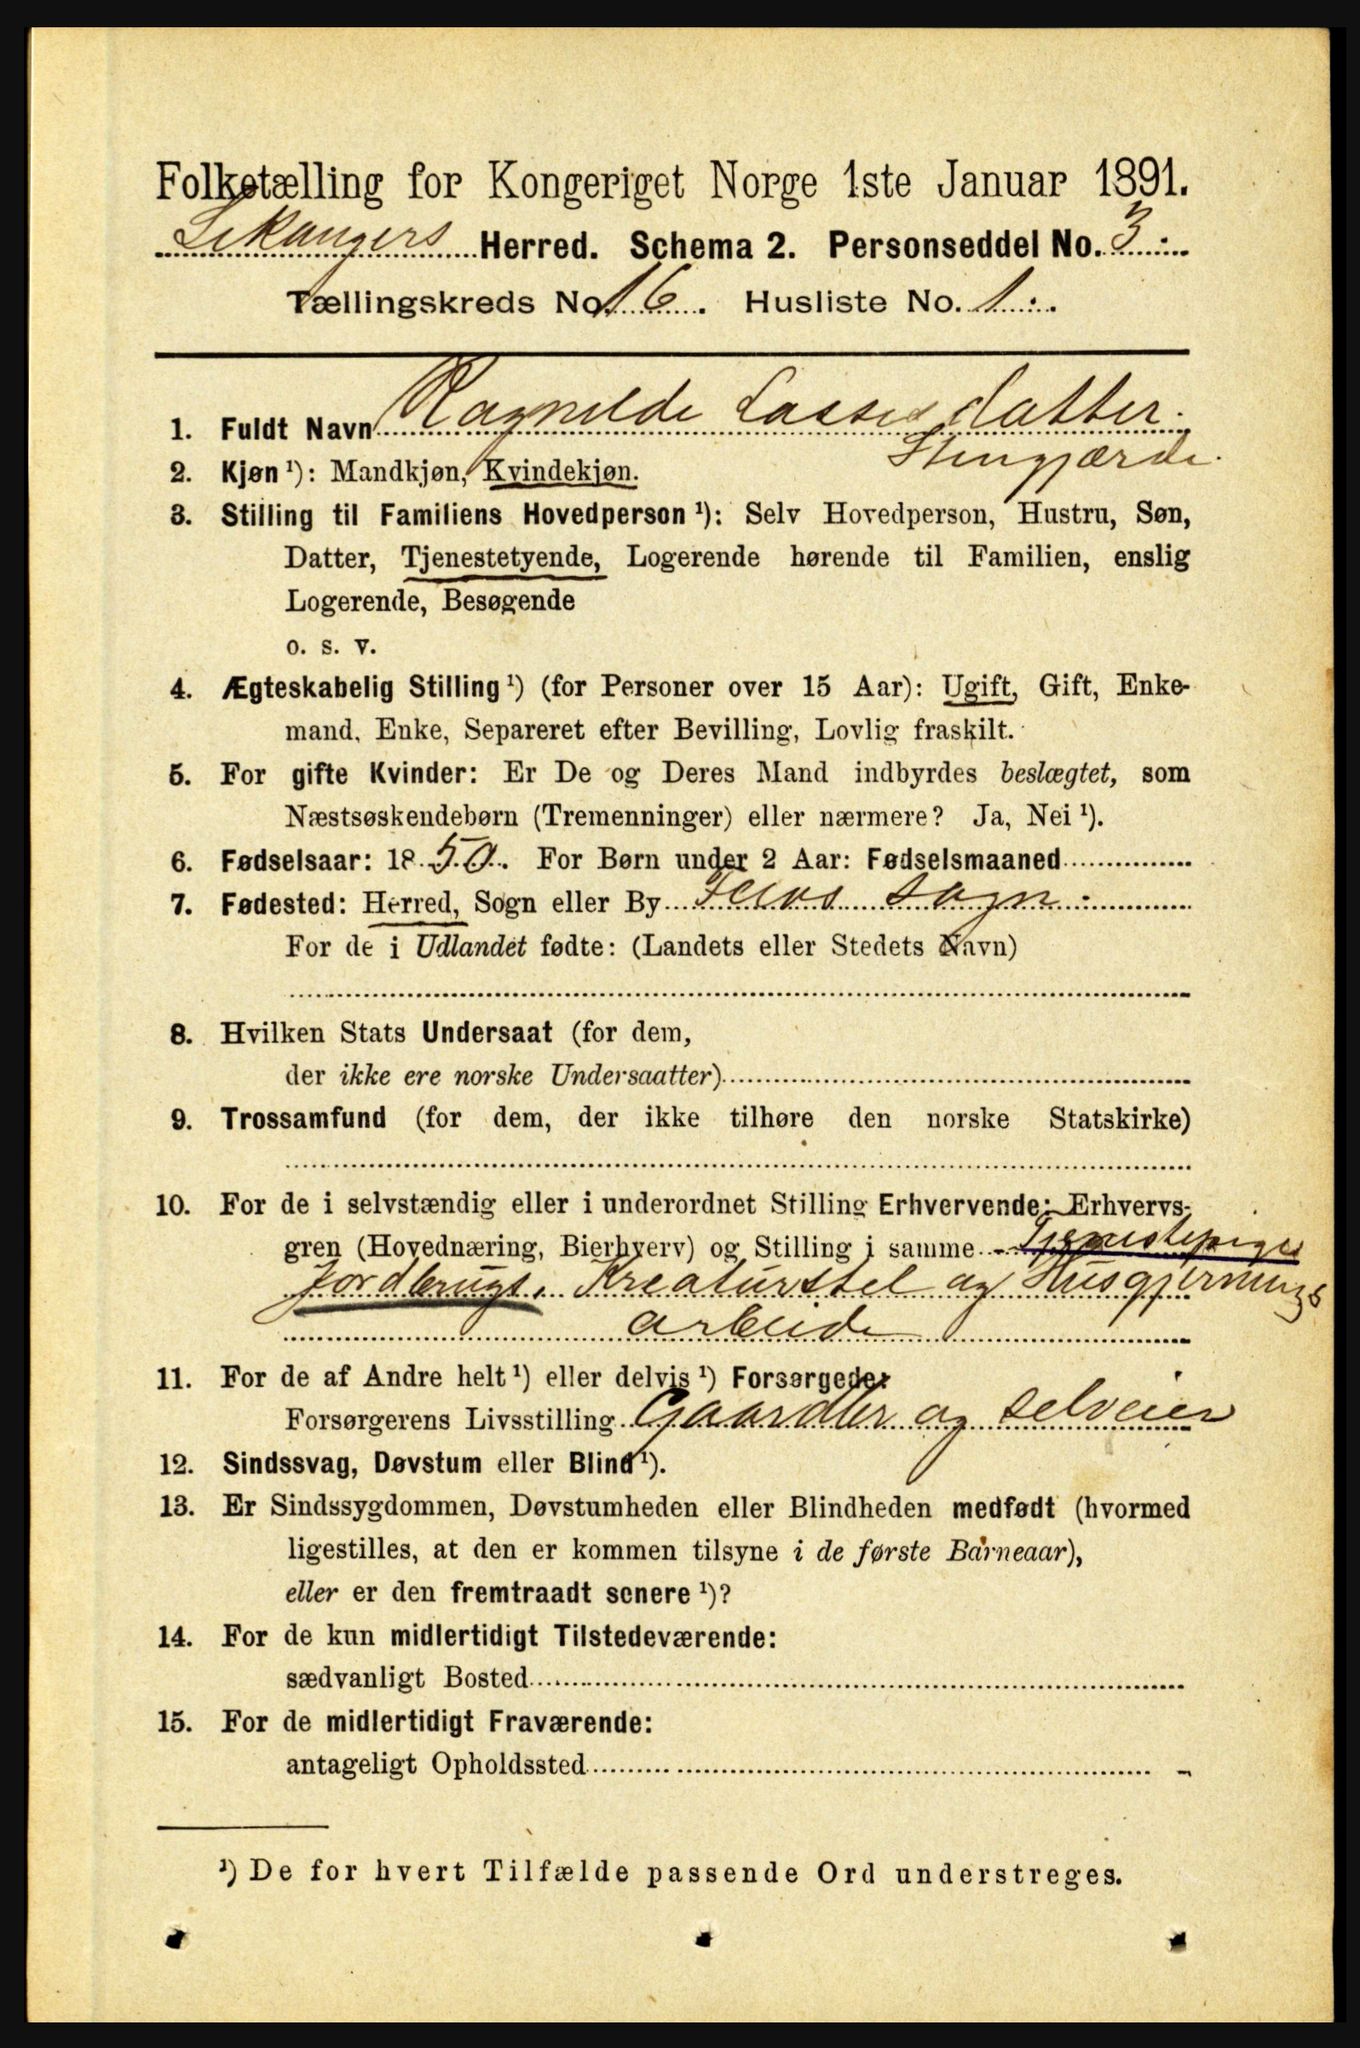 Folketælling for Kongeriget Norge 1ste Januar 1891.
Lekangers Herred. Schema 2. Personseddel No. 3
Tællingskreds No. 16. Husliste No. 1.
1. Fuldt Navn Ragnilde Lassesdatter.
Stengjærde.
2. Kjøn ¹): Mandkjøn, Kvindekjøn.
3. Stilling til Familiens Hovedperson ¹): Selv Hovedperson, Hustru, Søn,
Datter, Tjenestetyende, Logerende hørende til Familien, enslig
Logerende, Besøgende
o. s. v.
4. Ægteskabelig Stilling ¹) (for Personer over 15 Aar): Ugift, Gift, Enke-
mand, Enke, Separeret efter Bevilling, Lovlig fraskilt.
5. For gifte Kvinder: Er De og Deres Mand indbyrdes beslægtet, som
Næstsøskendebørn (Tremenninger) eller nærmere? Ja, Nei ¹).
6. Fødselsaar: 1850. For Børn under 2 Aar: Fødselsmaaned
7. Fødested: Herred, Sogn eller By Feios Sogn
For de i Udlandet fødte: (Landets eller Stedets Navn)
8. Hvilken Stats Undersaat (for dem,
der ikke ere norske Undersaatter)
9. Trossamfund (for dem, der ikke tilhøre den norske Statskirke)
10. For de i selvstændig eller i underordnet Stilling Erhvervende: Erhvervs-
gren (Hovednæring, Bierhverv) og Stilling i samme Tjenestepiges
Jordbrugs, Kreaturstel og Husgjernings
arbeide
11. For de af Andre helt ¹) eller delvis ¹) Forsørgede:
Forsørgerens Livsstilling Gaardbr og selveier
12. Sindssvag, Døvstum eller Blind ¹).
13. Er Sindssygdommen, Døvstumheden eller Blindheden medfødt (hvormed
ligestilles, at den er kommen tilsyne i de første Barneaar),
eller er den fremtraadt senere ¹)?
14. For de kun midlertidigt Tilstedeværende:
sædvanligt Bosted
15. For de midlertidigt Fraværende:
antageligt Opholdssted
¹) De for hvert Tilfælde passende Ord understreges.